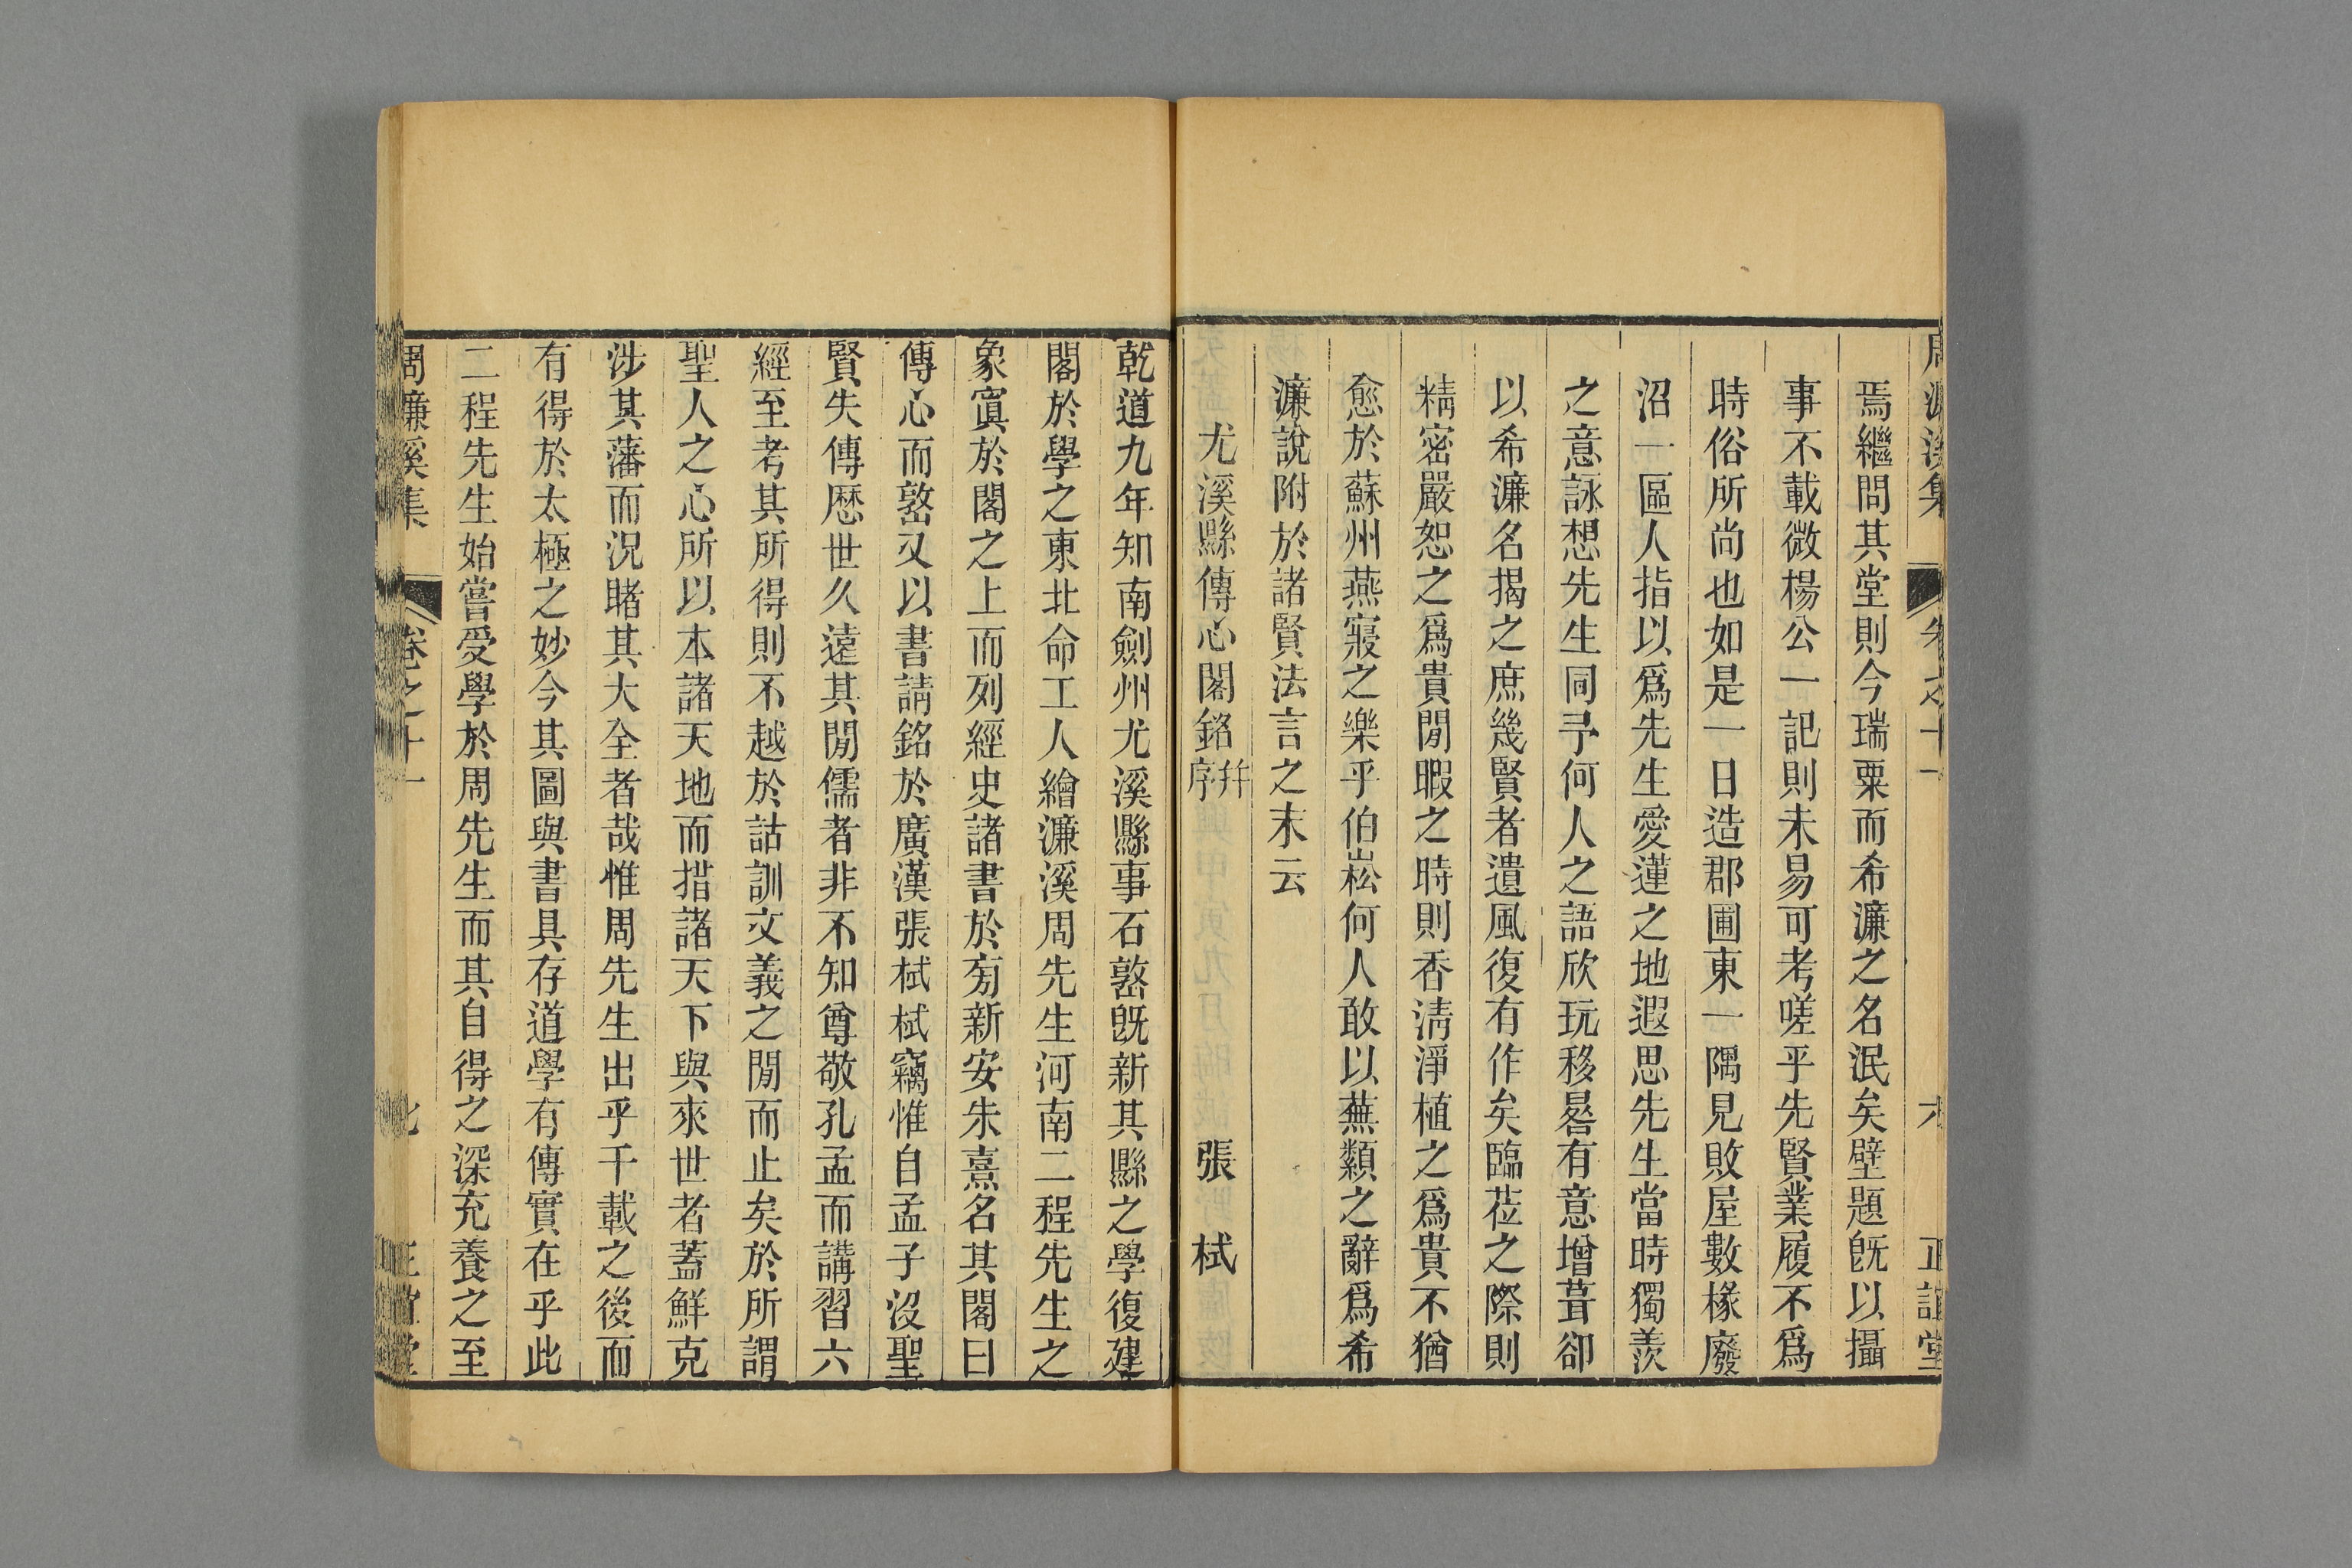 周濂溪集 卷之十一 六 正誼堂
焉繼問其堂則今瑞粟而希濂之名泯矣壁題旣以攝
事不載微楊公一記則未易可考嗟乎先賢業履不爲
時俗所尚也如是一日造郡圃東一隅見敗屋數椽廢
沼一區人指以爲先生愛蓮之地遐思先生當時獨羨
之意詠想先生同予何人之語欣玩移晷有意增葺卻
以希濂名揭之庶幾賢者遺風復有作矣臨莅之際則
精密嚴恕之爲貴閒暇之時則香淸淨植之爲貴不猶
愈於蘇州燕寢之樂乎伯崧何人敢以蕪纇之辭爲希
濂說附於諸賢法言之末云
尤溪縣傳心閣銘幷序 張栻
乾道九年知南劍州尤溪縣事石𡼖旣新其縣之學復建
閣於學之東北命工人繪濂溪周先生河南二程先生之
象寘於閣之上而列經史諸書於旁新安朱熹名其閣曰
傳心而𡼖又以書請銘於廣漢張栻栻竊惟自孟子沒聖
賢失傳歷世久遠其閒儒者非不知尊敬孔孟而講習六
經至考其所得則不越於詁訓文義之閒而止矣於所謂
聖人之心所以本諸天地而措諸天下與來世者蓋鮮克
涉其藩而況睹其大全者哉惟周先生出乎千載之後而
有得於太極之妙今其圖與書具存道學有傳實在乎此
二程先生始嘗受學於周先生而其自得之深充養之至
周濂溪集 卷之十一 七 正誼堂